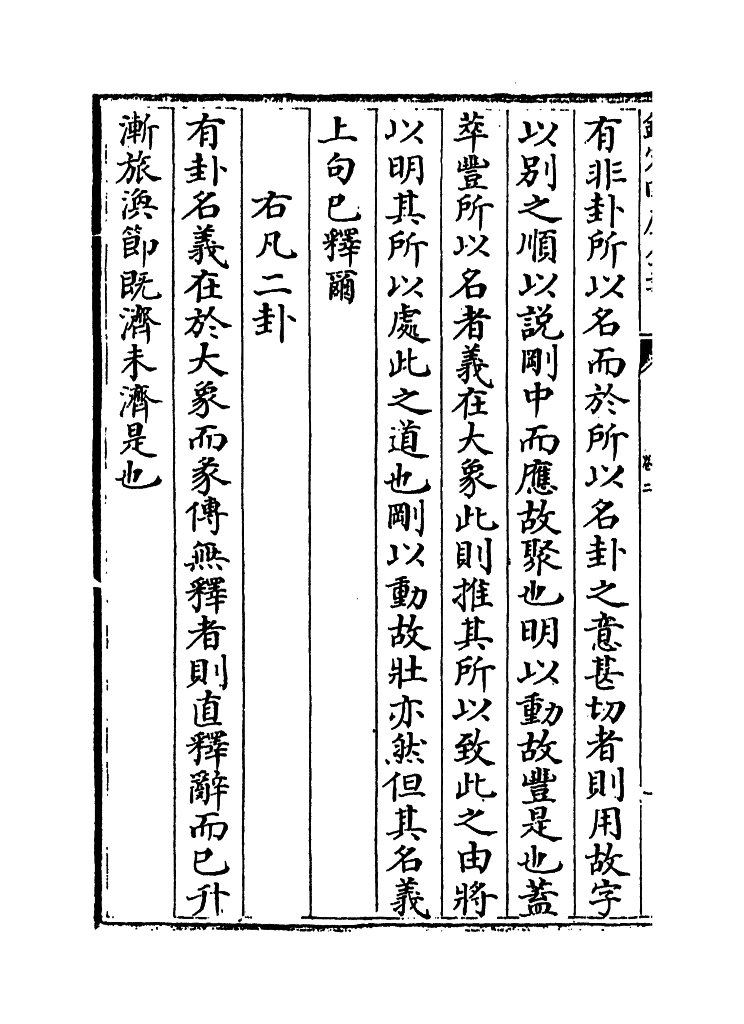 有非卦所以名而於所以名卦之意甚切者則用故字
以别之順以説剛中而應故聚也明以動故豐是也蓋
萃豐所以名者義在大象此則推其所以致此之由將
以明其所以處此之道也剛以動故壯亦然但其名義
上句已釋爾
右凡二卦
有卦名義在於大象而彖傳無釋者則直釋辭而已升
漸旅渙節既濟未濟是也